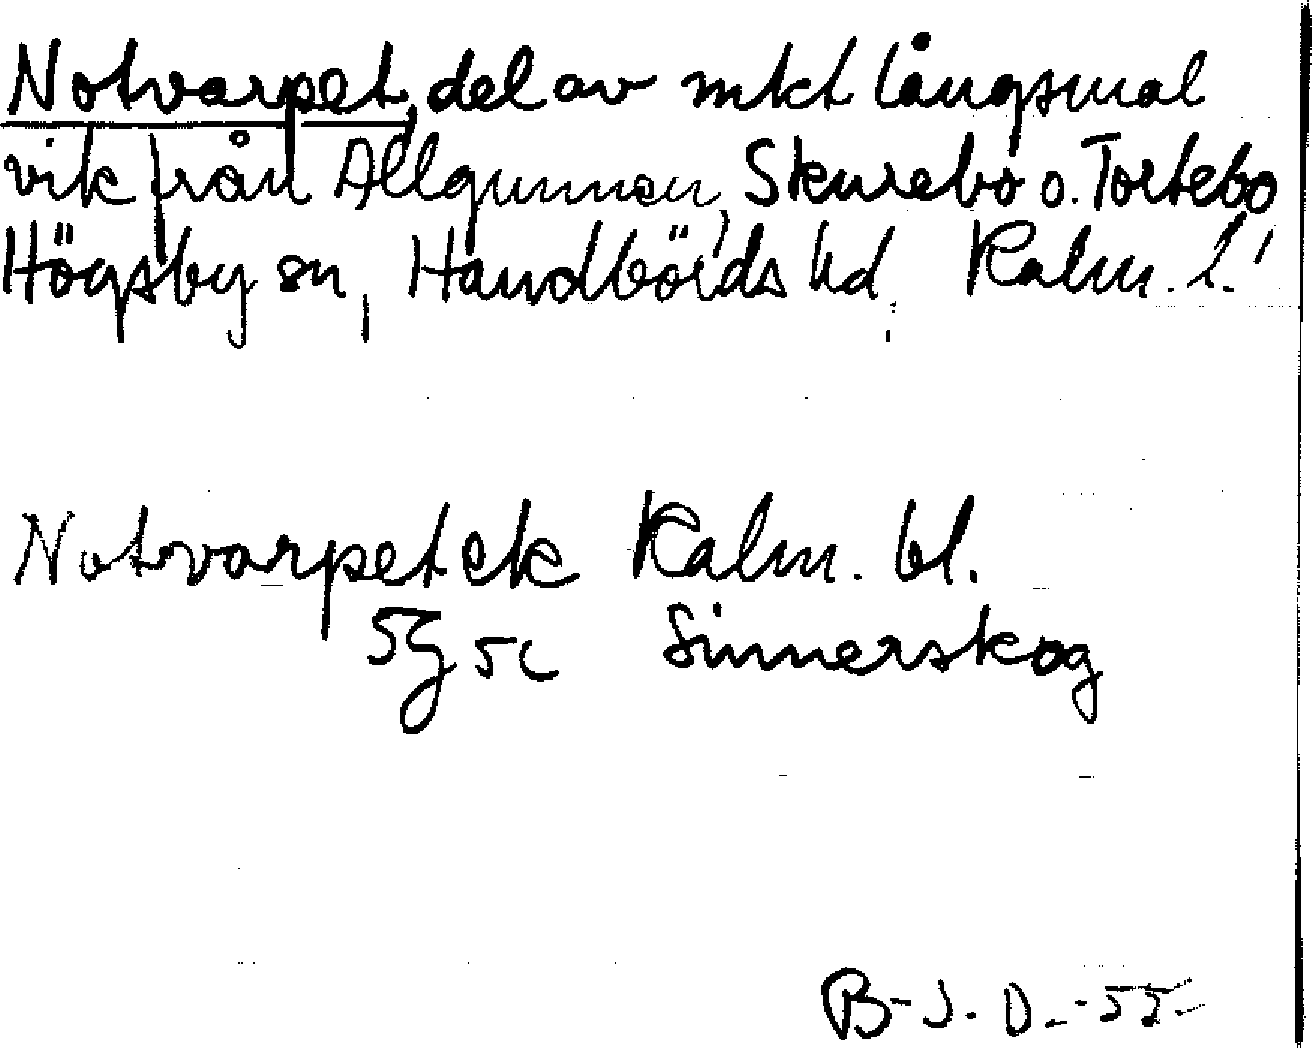 Notvarpet, del av mkt långsmal
vik från Allgunnen, Skurebo o. Tortebo,
Högsby sn, Handbörds hd, Kalm. l.
Notvarpet ek Kalm. bl.
5g 5c Sinnerskog
B-J. D. -55